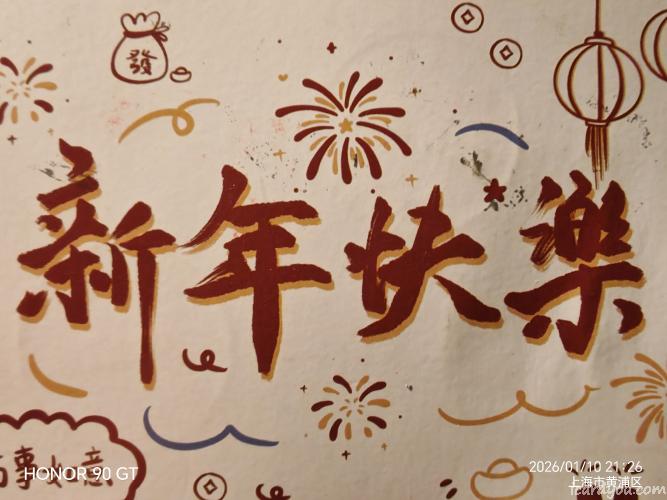 發
新年快樂
事如意
HONOR 90 GT
2026/01/10 21:26
上海市黄浦区
tcarayou.com